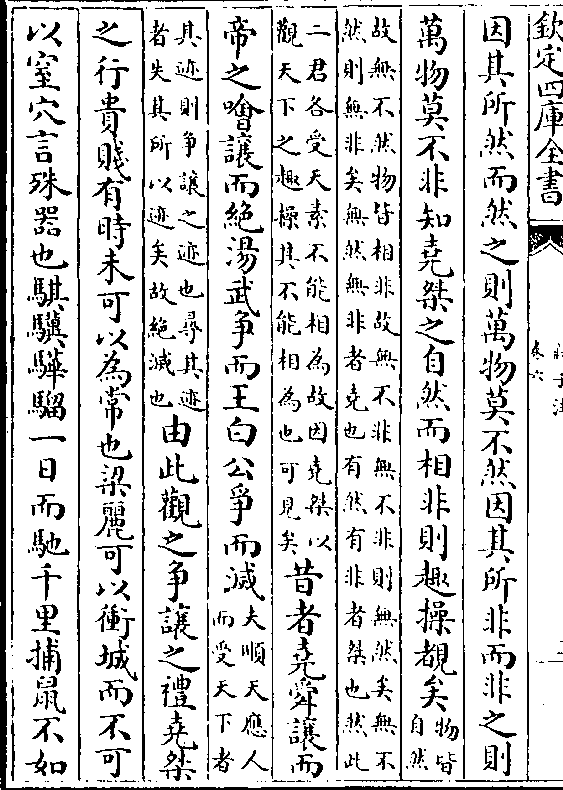 欽定四庫全書
莊子注
卷六
因其所然而然之則萬物莫不然因其所非而非之則
萬物莫不非知堯桀之自然而相非則趣操覩矣
物皆
自然
故無不然物皆相非故無不非無不非則無然矣無不
然則無非矣無然無非者堯也有然有非者桀也然此
二君各受天素不能相為故因堯桀以
觀天下之趣操其不能相為也可見矣
昔者堯舜讓而
帝之噲讓而絶湯武争而王白公爭而滅
夫順天應人
而受天下者
其迹則争讓之迹也尋其迹
者失其所以迹矣故絶滅也
由此觀之争讓之禮堯桀
之行貴賤有時未可以為常也梁麗可以衝城而不可
以窒穴言殊器也騏驥驊騮一日而馳千里捕鼠不如